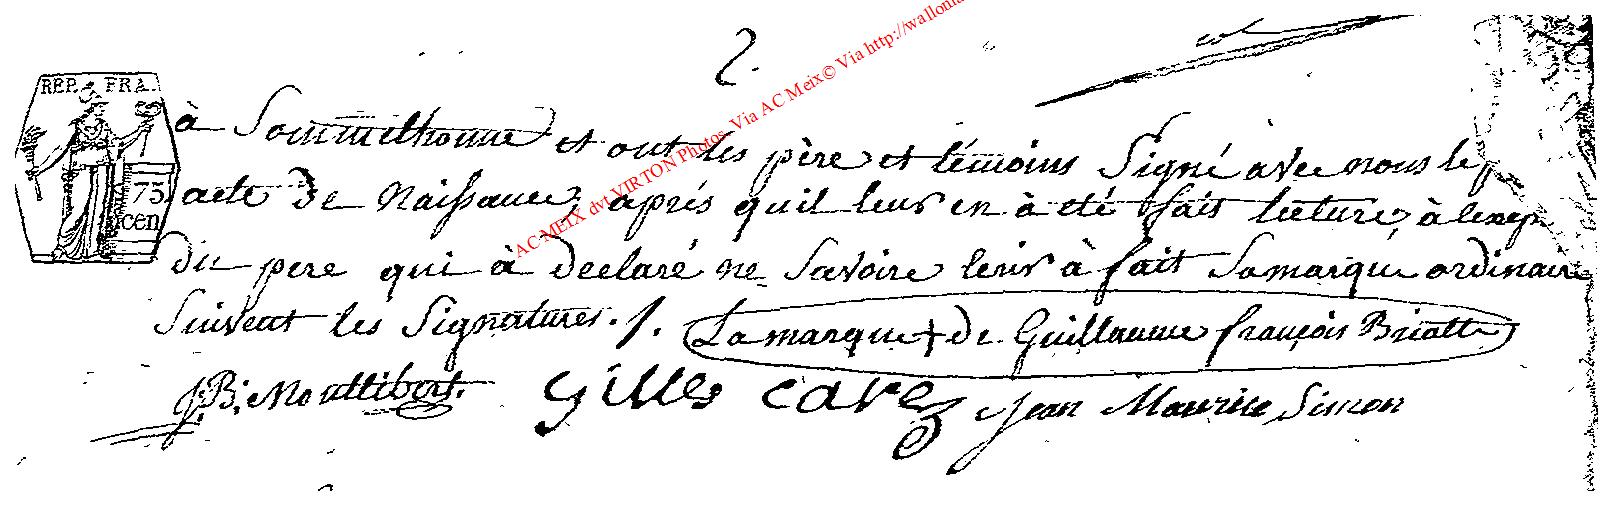 2.
REP. FRA.
75
cen
AC MEIX dvt VIRTON Photos Via AC Meix© Via http://wallonia
à Sommethonne et ont les père et témoins Signé avec nous le p
acte de Naissance, aprés quil leur en à été fait lecture, à lexcep
du pere qui à declaré ne Savoire à fait Samarque ordinaire
Suivent les Signatures ./. La marque + de Guillaume françois
J:B: Gilles Cavez Jean Maurice Simon